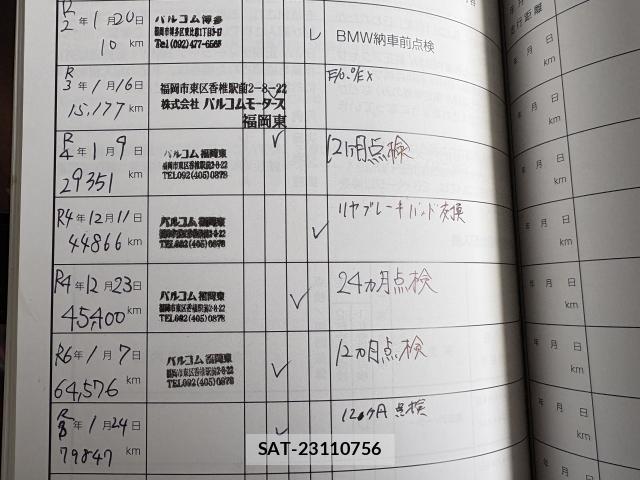 R
2年1月20日
10 km
バルコム博多
福岡市博多区東比恵1丁目3-17
Tel (092)477-6565
BMW納車前点検
R
3年1月16日
15,177 km
福岡市東区香椎駅前2-8-22
株式会社 バルコムモータース
福岡東
E/o. o/Ex
R
4年1月9日
29351 km
バルコム 福岡東
福岡市東区香椎駅前2-8-22
TEL092(405)0878
12ヵ月点検
R4年12月11日
44866 km
バルコム 福岡東
福岡市東区香椎駅前2-8-22
TEL092(405)0878
リヤブレーキパッド交換
R4年12月23日
45,400 km
バルコム 福岡東
福岡市東区香椎駅前2-8-22
TEL092(405)0878
24ヵ月点検
R6年1月7日
64,576 km
バルコム 福岡東
福岡市東区香椎駅前2-8-22
TEL092(405)0878
12ヵ月点検
R
年1月24日
79847 km
12ヶ月点検
走行距離
年 月 日
km
年 月 日
km
年 月 日
km
年 月 日
km
年 月 日
km
年 月 日
km
年 月 日
km
SAT-23110756